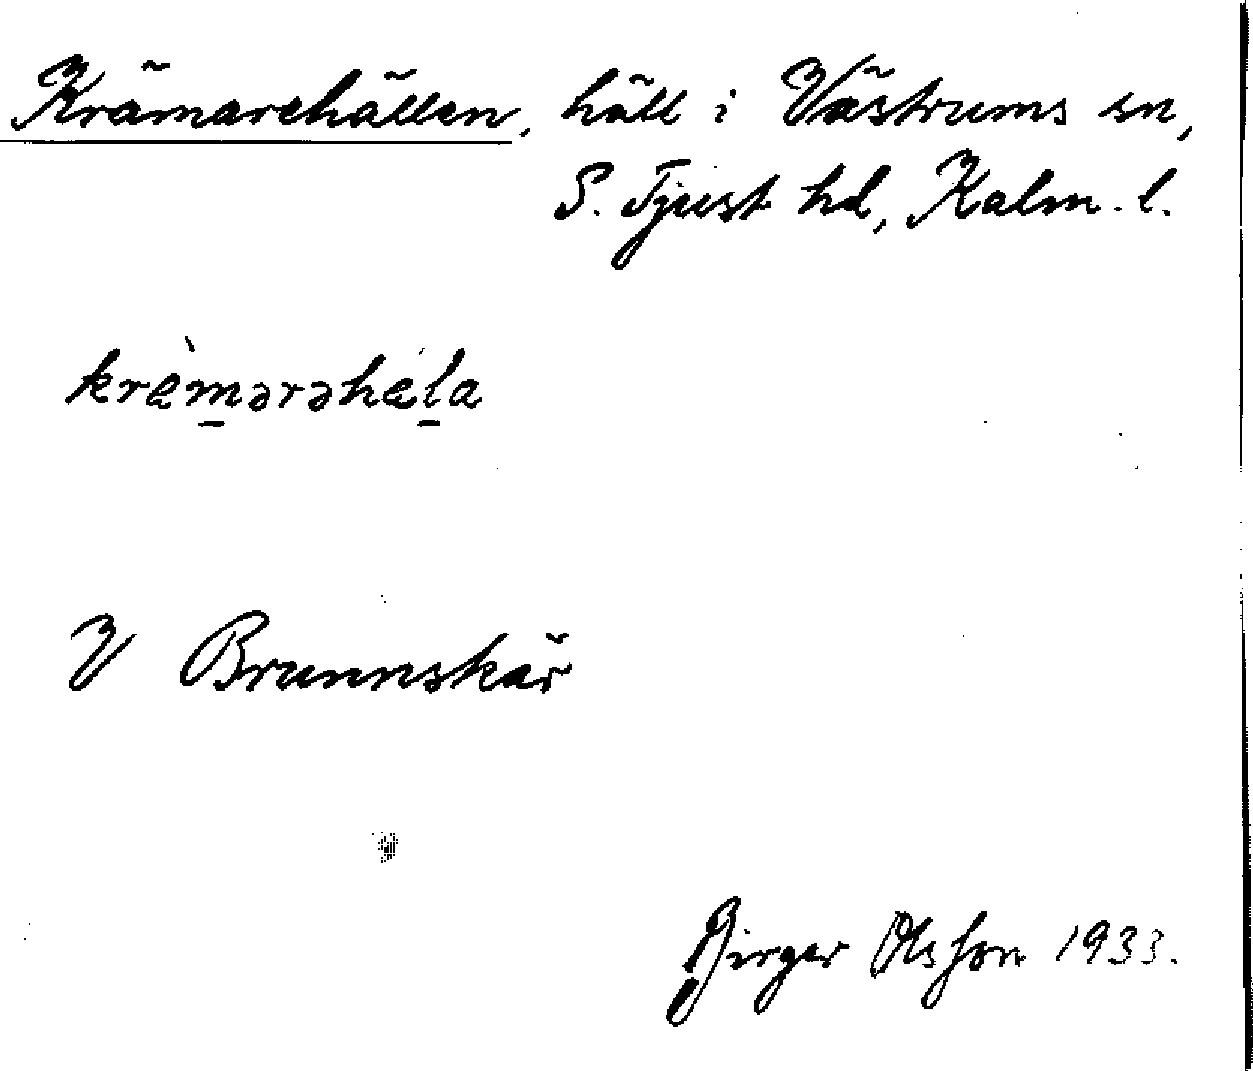 Krämarehällen, häll i Västrums sn,
S. Tjust hd, Kalm. l.
kræ̀m̲ərəhæl̲a
V Brunnskär
Birger Olsson 1933.